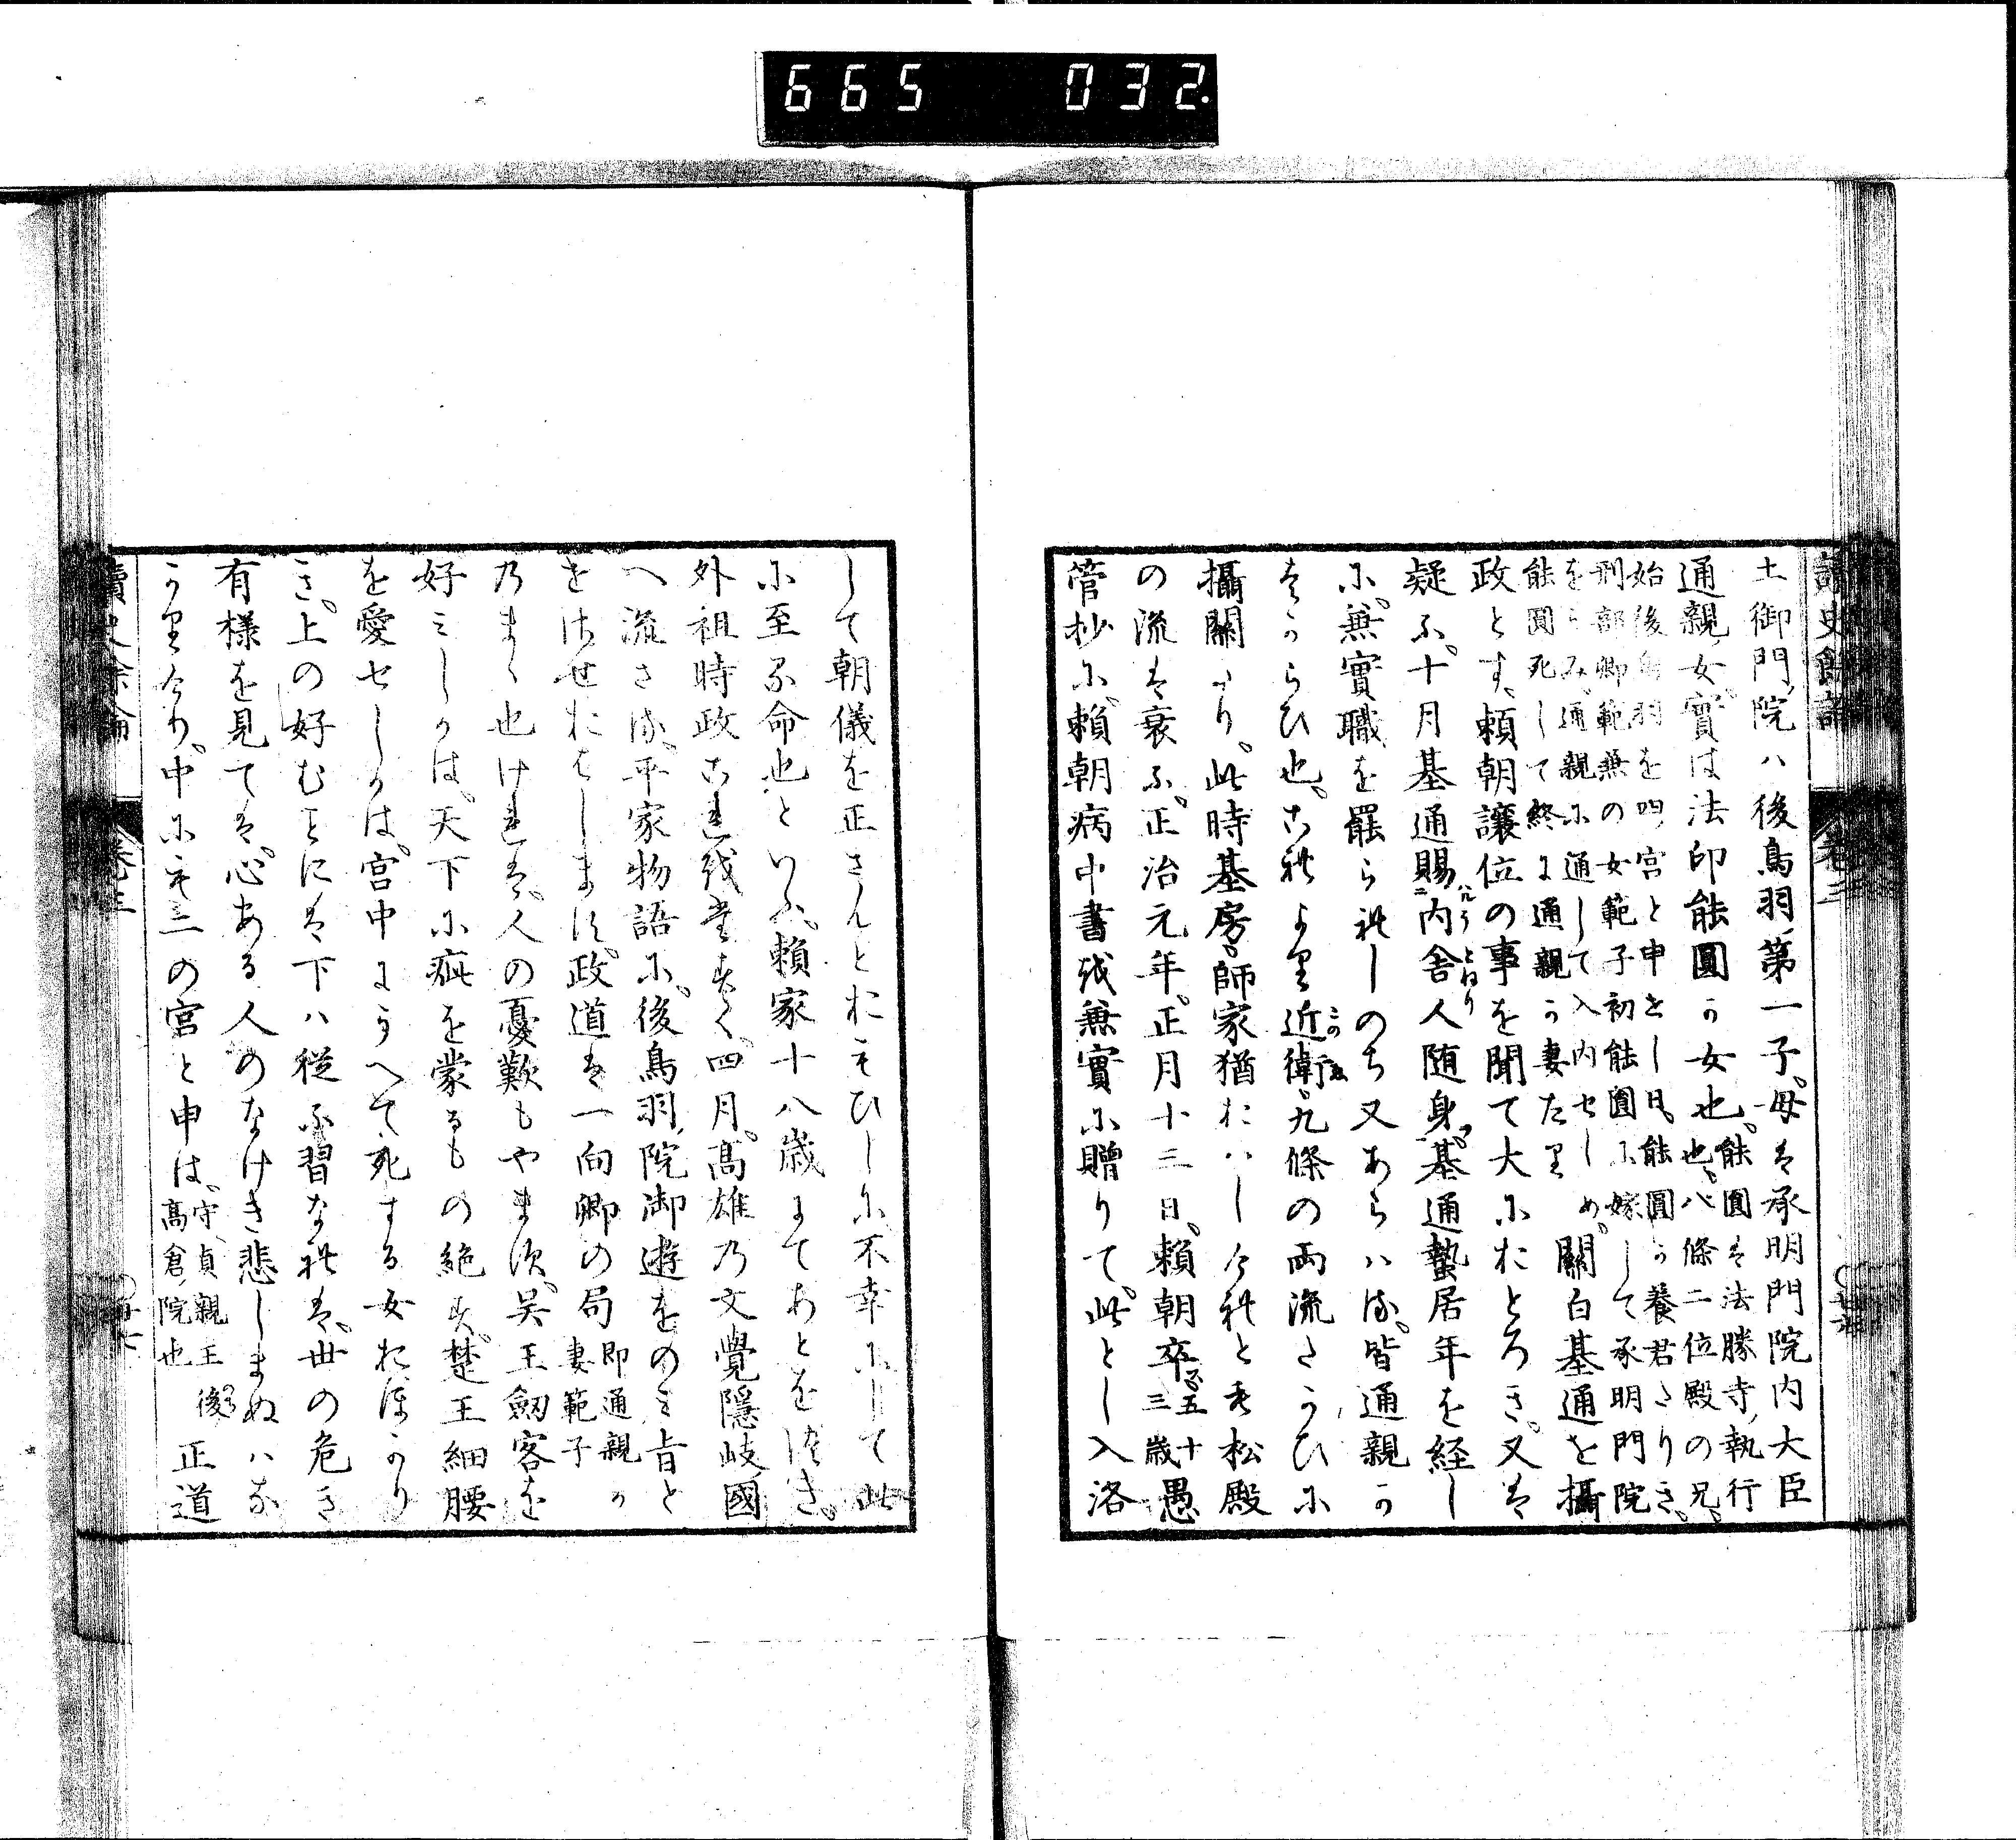 665 032
讀史餘論 卷三
土御門院ハ後鳥羽第一子母は承明門院内大臣
通親女實は法印能圓か女也能圓は法勝寺執行
也八條二位殿の兄
始後鳥羽を四宮と申せし日能圓か養君たりき
刑部卿範兼の女範子初能圓に嫁して承明門院
をうみ通親に通して入内せしめ
能圓死して終に通親か妻たり
關白基通を攝
政とす頼朝譲位の事を聞て大におとろき又は
疑ふ十月基通賜内舎人随身基通蟄居年を経し
に兼實職を罷られしのち又あらハる皆通親か
はからひ也これより近衛九條の両流たかひに
攝關たり此時基房師家猶おハしけれとも松殿
の流は衰ふ正治元年正月十三日頼朝卒五十三歳愚
管抄に頼朝病中書を兼實に贈りて此とし入洛
して朝儀を正さんとおもひしに不幸にして此
に至る命也といふ頼家十八歳にてあとを續き
外祖時政これを輔く四月高雄の文覺隠岐國
へ流さる平家物語に後鳥羽院御遊をのミ旨と
せさせおはします政道は一向卿の局即通親か妻範子
のまゝ也けれは人の憂歎もやます呉王劔客を
好ミしかは天下に疵を蒙るもの絶す楚王細腰
を愛セしかは宮中にうへて死する女おほかり
き上の好むことには下ハ従ふ習なれは世の危き
有様を見ては心ある人のなけき悲しまぬハな
かりけり中にも二の宮と申は守貞親王後高倉院也正道
讀史餘論 卷三